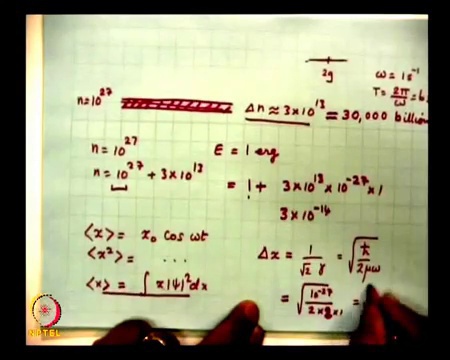 2g
ω = 1 s⁻¹
T = 2π/ω = 6
n=10²⁷
Δn ≈ 3×10¹³ = 30,000 billion
n = 10²⁷
n = 10²⁷ + 3×10¹³
E = 1 erg
= 1 + 3×10¹³ × 10⁻²⁷ × 1
3×10⁻¹⁴
<x> = x₀ cos ωt
<x²> = ...
<x> = ∫ x|ψ|² dx
Δx = 1/(√2 γ) = √(ħ/2μω)
= √(10⁻²⁷/2×2×1) =
NPTEL